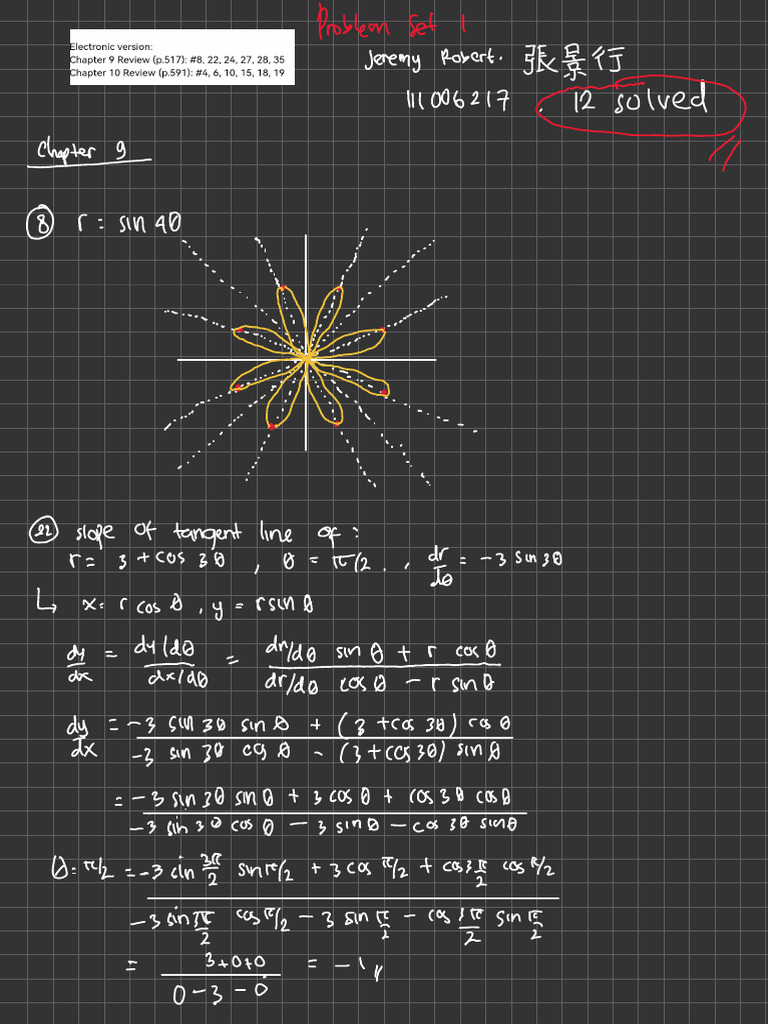 Problem Set 1
Electronic version:
Chapter 9 Review (p.517): #8, 22, 24, 27, 28, 35
Chapter 10 Review (p.591): #4, 6, 10, 15, 18, 19
Jeremy Robert. 張景行
111006217 . 12 solved
Chapter 9
⑧ r = sin 4θ
㉒ slope of tangent line of :
r = 3 + cos 3θ , θ = π/2 , , dr/dθ = -3 sin 3θ
↳ x = r cos θ , y = r sin θ
dy/dx = (dy/dθ)/(dx/dθ) = (dr/dθ sin θ + r cos θ)/(dr/dθ cos θ - r sin θ)
dy/dx = (-3 sin 3θ sin θ + (3 + cos 3θ) cos θ)/(-3 sin 3θ cos θ - (3 + cos 3θ) sin θ)
= (-3 sin 3θ sin θ + 3 cos θ + cos 3θ cos θ)/(-3 sin 3θ cos θ - 3 sin θ - cos 3θ sin θ)
θ = π/2 = (-3 sin 3π/2 sin π/2 + 3 cos π/2 + cos 3π/2 cos π/2)/(-3 sin 3π/2 cos π/2 - 3 sin π/2 - cos 3π/2 sin π/2)
= (3+0+0)/(0-3-0) = -1